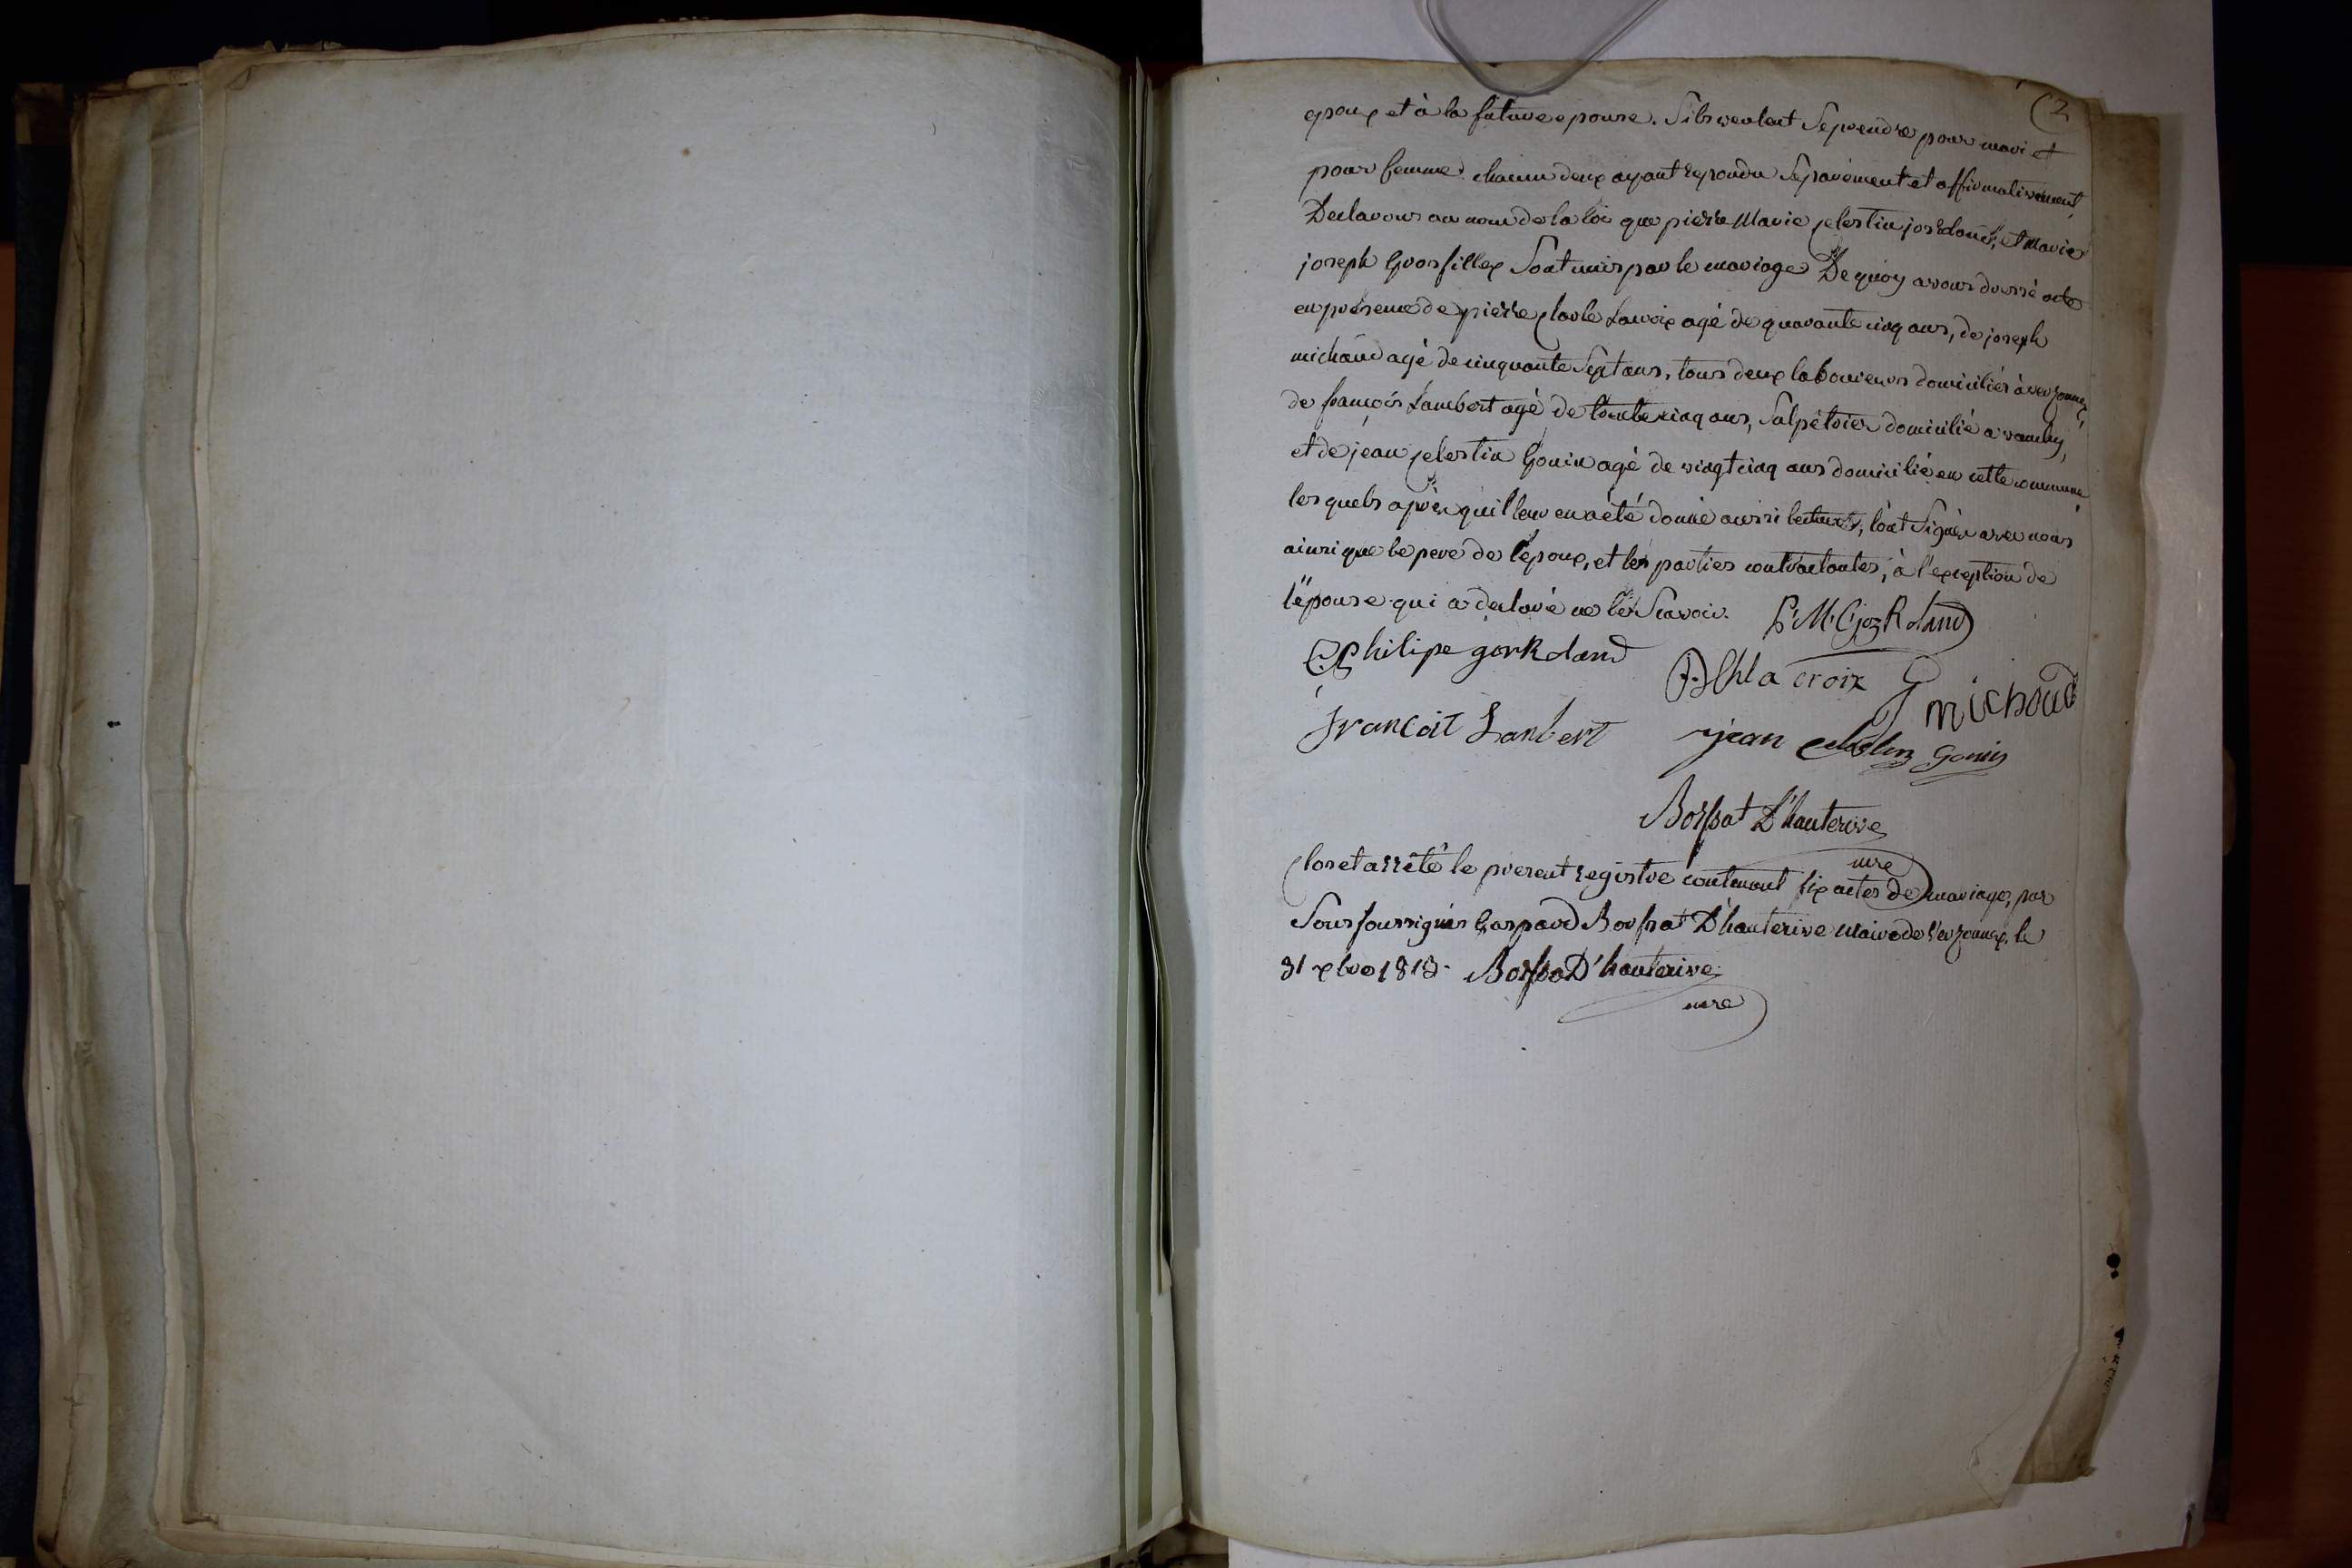 2
epoux et à la future epouse. S'ils veulent Se prendre pour mari et
pour femme. chacun deux ayant repondu Separément et affirmativement,
Declarons au nom de la loi que pierre Marie celestin et Marie
joseph Grosfillex Sont unis par le mariage De quoy avons dressé acte
en présence de pierre Lacroix agé de quarante cinq ans, de joseph
michaud agé de cinquante Sept ans, tous deux laboureurs domiciliés à veyzonnex,
de françois Lambert agé de trente cinq ans, Salpétrier domicilié a
et de jean celestin Gonin agé de vingt cinq ans domicilié en cette commune
les quels après qu'il leur en a été donné aussi lecture, l'ont Signés avec nous
ainsi que le pere de l'epoux, et les parties contractantes, à l'exception de
l'épouse qui a declaré ne le Scavoir. P. M. C. joz Roland
Philipe Roland
lacroix
michoud
francoit Lanbert
jean celestin Gonin
Borssat D'hauterive
mre
Clos et arrêté le present registre contenant six actes de mariage, par
Nous soussignés Gaspard Borssat D'hauterive Maire de Veyzonnex. le
31 xbre 1813. Borssat D'hauterive
mre